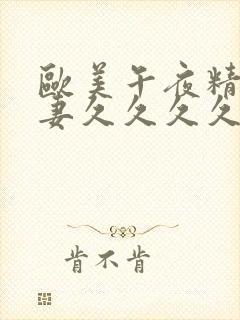 歐美午夜精
妻久久久久
肯不肯